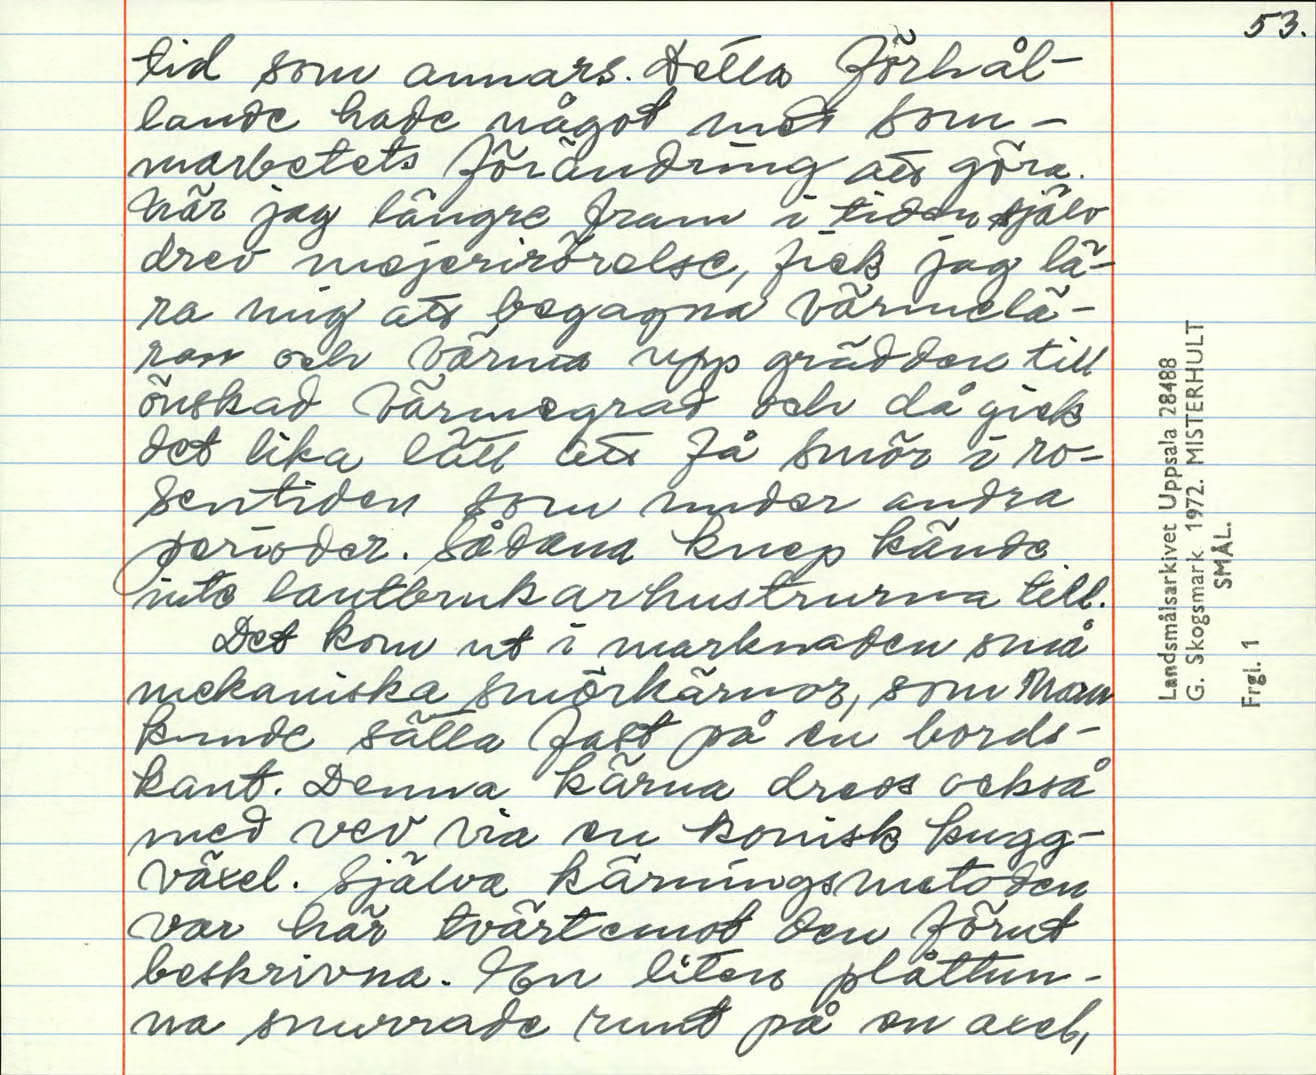 53.
tid som annars. Detta förhål-
lande hade något med som-
marbetets förändring att göra.
När jag längre fram i tiden själv
drev mejerirörelse, fick jag lä-
ra mig att begagna värmelä-
ran och värma upp grädden till
önskad värmegrad och då gick
det lika lätt att få smör i ro-
sentiden som under andra
perioder. Sådana knep kände
inte lantbrukarhustrurna till.
Det kom ut i marknaden små
mekaniska smörkärnor, som man
kunde sätta fast på en bords-
kant. Denna kärna drevs också
med vev via en konisk kugg-
växel. Själva kärningsmetoden
var här tvärtemot den förut
beskrivna. En liten plåttun-
na snurrade runt på en axel,
Landsmålsarkivet Uppsala 28488
G. Skogsmark. 1972. MISTERHULT
SMÅL.
Frgl. 1